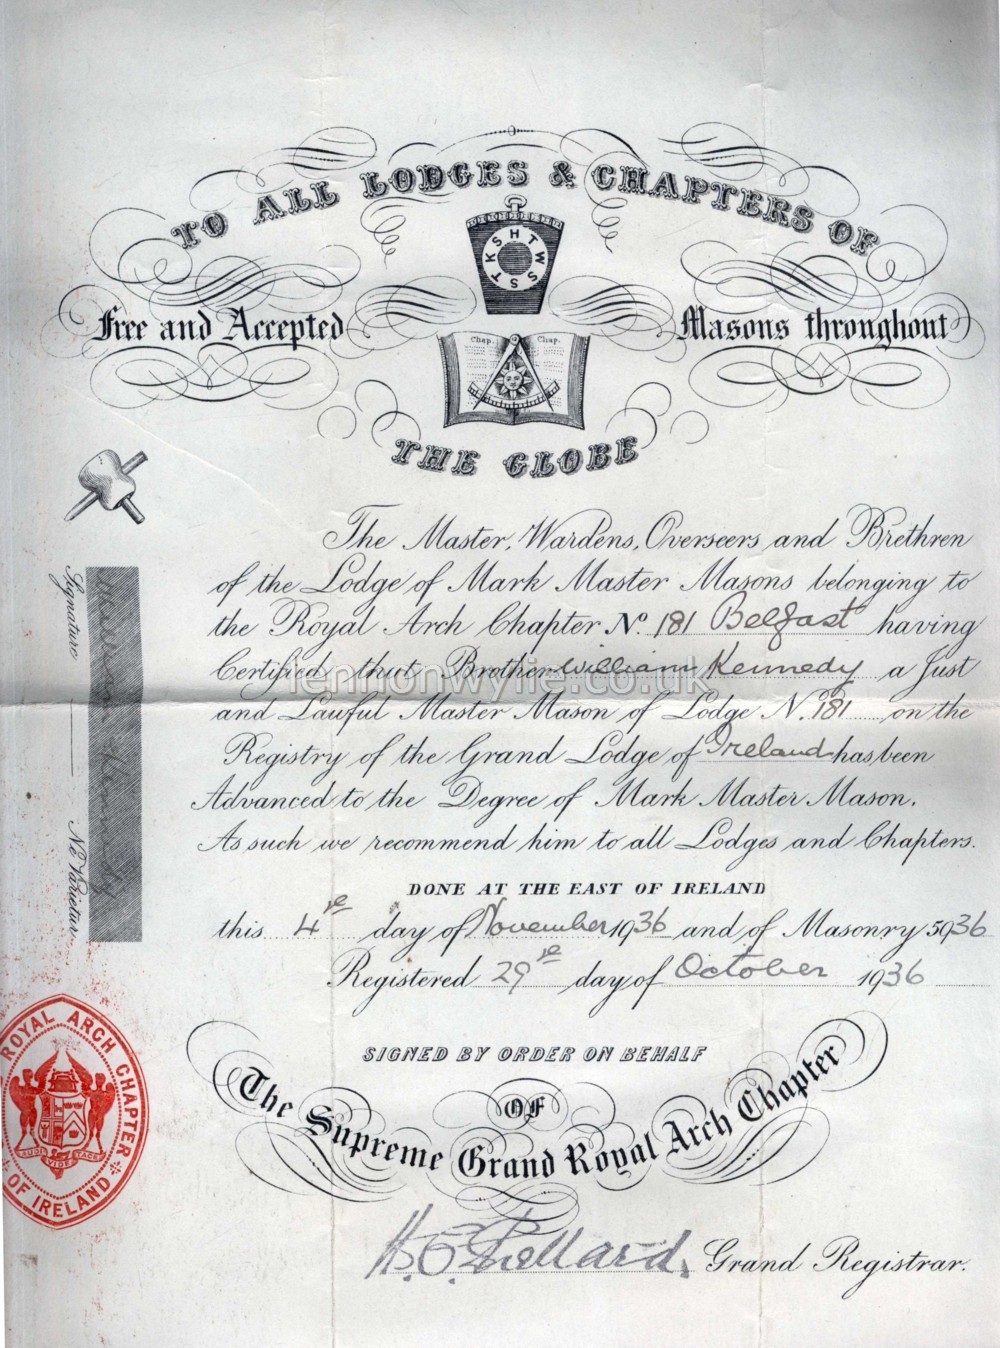 TO ALL LODGES & CHAPTERS OF
HTWSSTKS
Free and Accepted Masons throughout
Chap. Chap.
THE GLOBE
The Master, Wardens, Overseers and Brethren
of the Lodge of Mark Master Masons belonging to
the Royal Arch Chapter No. 181 Belfast having
Certified that Brother William Kennedy a Just
lennonwylie.co.uk
and Lawful Master Mason of Lodge No. 181 on the
Registry of the Grand Lodge of Ireland has been
Advanced to the Degree of Mark Master Mason.
As such we recommend him to all Lodges and Chapters.
DONE AT THE EAST OF IRELAND
this 4th day of November 1936 and of Masonry 5936
Registered 29th day of October 1936
Signature Ne Varietur
William Kennedy
SIGNED BY ORDER ON BEHALF
OF
The Supreme Grand Royal Arch Chapter
Grand Registrar.
ROYAL ARCH CHAPTER OF IRELAND
AUDI VIDE TACE